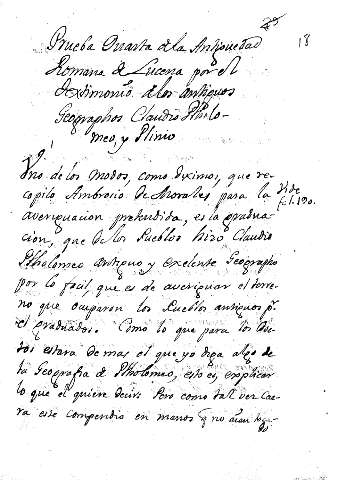 18
Prueba Quarta de la Antiguedad
Romana de Lucena por el
Testimonio de los antiguos
Geographos Claudio Ptholo-
meo, y Plinio
Uno de los modos, como diximos, que re-
copilo Ambrosio de Morales para la
averiguacion pretendida, es la gradua-
cion, que de los Pueblos hizo Claudio
Ptholomeo antiguo y exelente Geographo
por lo facil, que es de averiguar el terre-
no que ocuparon los Pueblos antiguos pr.
el graduados. Como lo que para los Doc-
tos estara demas el que yo diga algo de
la Geografia de Ptholomeo, esto es, explicar
lo que el quiere decir. Pero como tal vez cae-
ra este compendio en manos q no aian
Vide
f. 190.